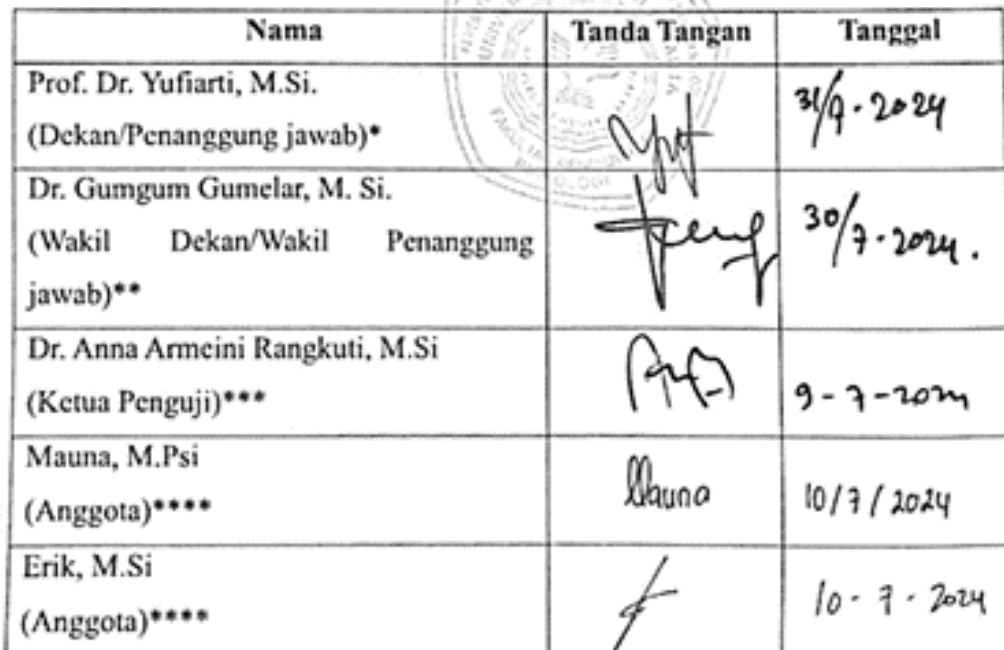 Nama Tanda Tangan Tanggal
Prof. Dr. Yufiarti, M.Si.
(Dekan/Penanggung jawab)*
31/7 - 2024
Dr. Gumgum Gumelar, M. Si.
(Wakil Dekan/Wakil Penanggung
jawab)**
30/7 - 2024.
Dr. Anna Armeini Rangkuti, M.Si
(Ketua Penguji)***
9 - 7 - 2024
Mauna, M.Psi
(Anggota)****
Mauna
10/7/2024
Erik, M.Si
(Anggota)****
10 - 7 - 2024